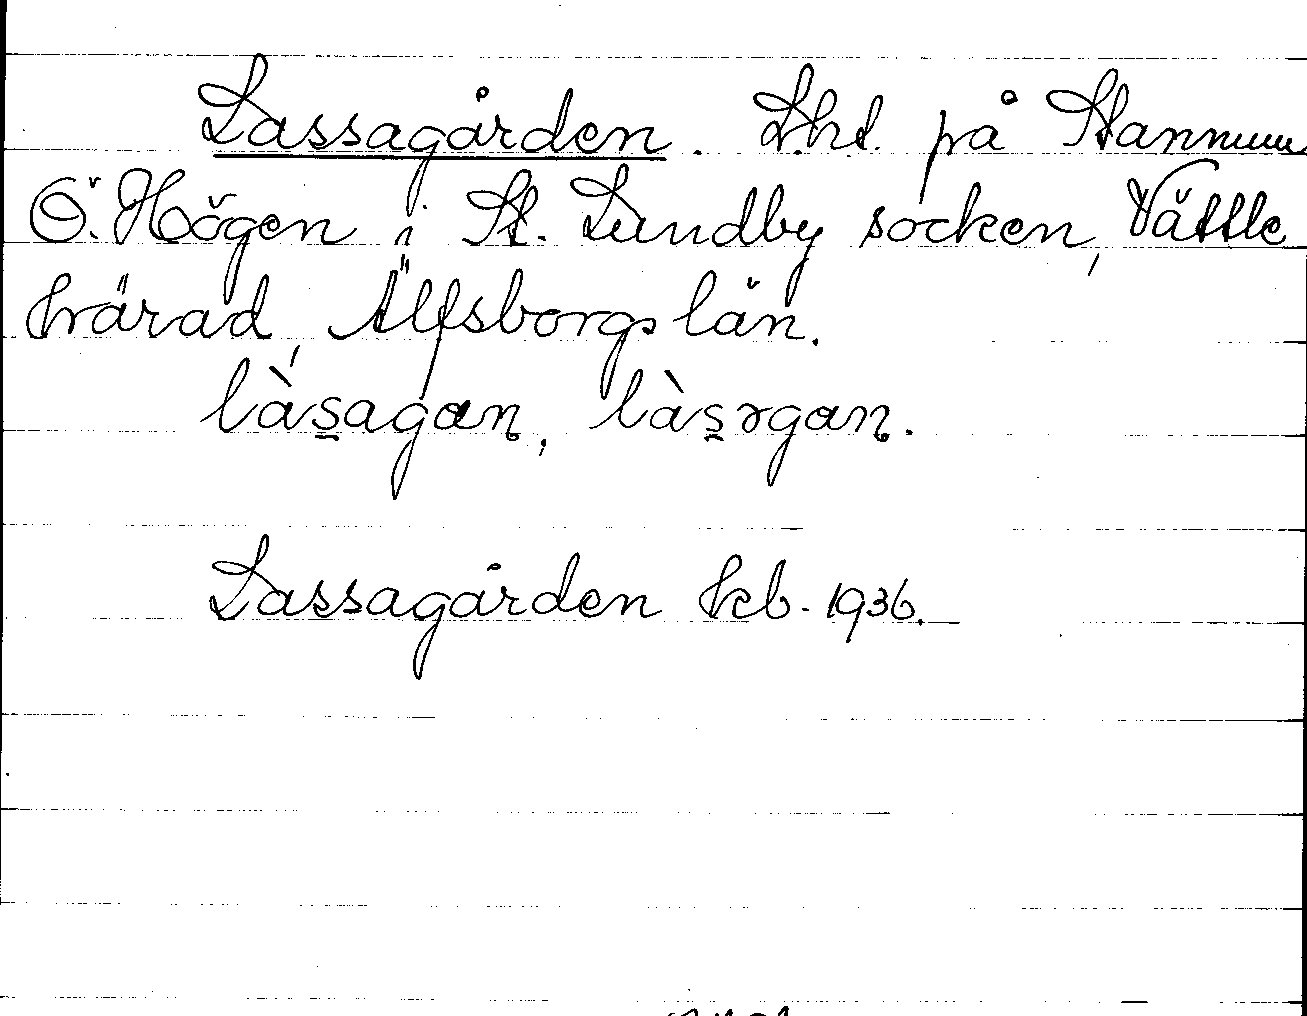 Lassagården. Lht. på Stannum
Ö. Högen i St. Lundby socken, Vättle
härad, Älfsborgs län.
làs̱agan, làs̱əgan.
Lassagården kb. 1936.